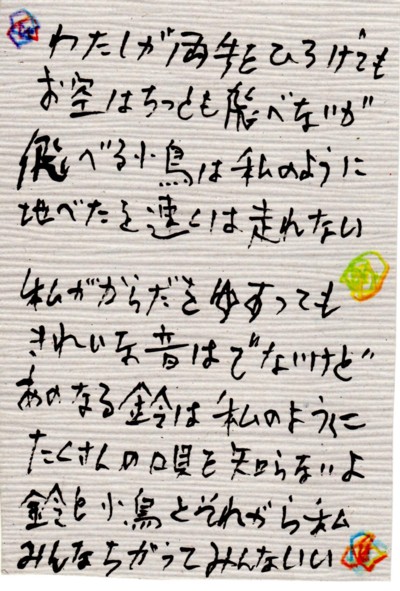 わたしが両手をひろげても
お空はちっとも飛べないが
飛べる小鳥は私のように
地べたを速くは走れない
私がからだをゆすっても
きれいな音はでないけど
あのなる鈴は私のように
たくさんの唄を知らないよ
鈴と小鳥とそれから私
みんなちがってみんないい